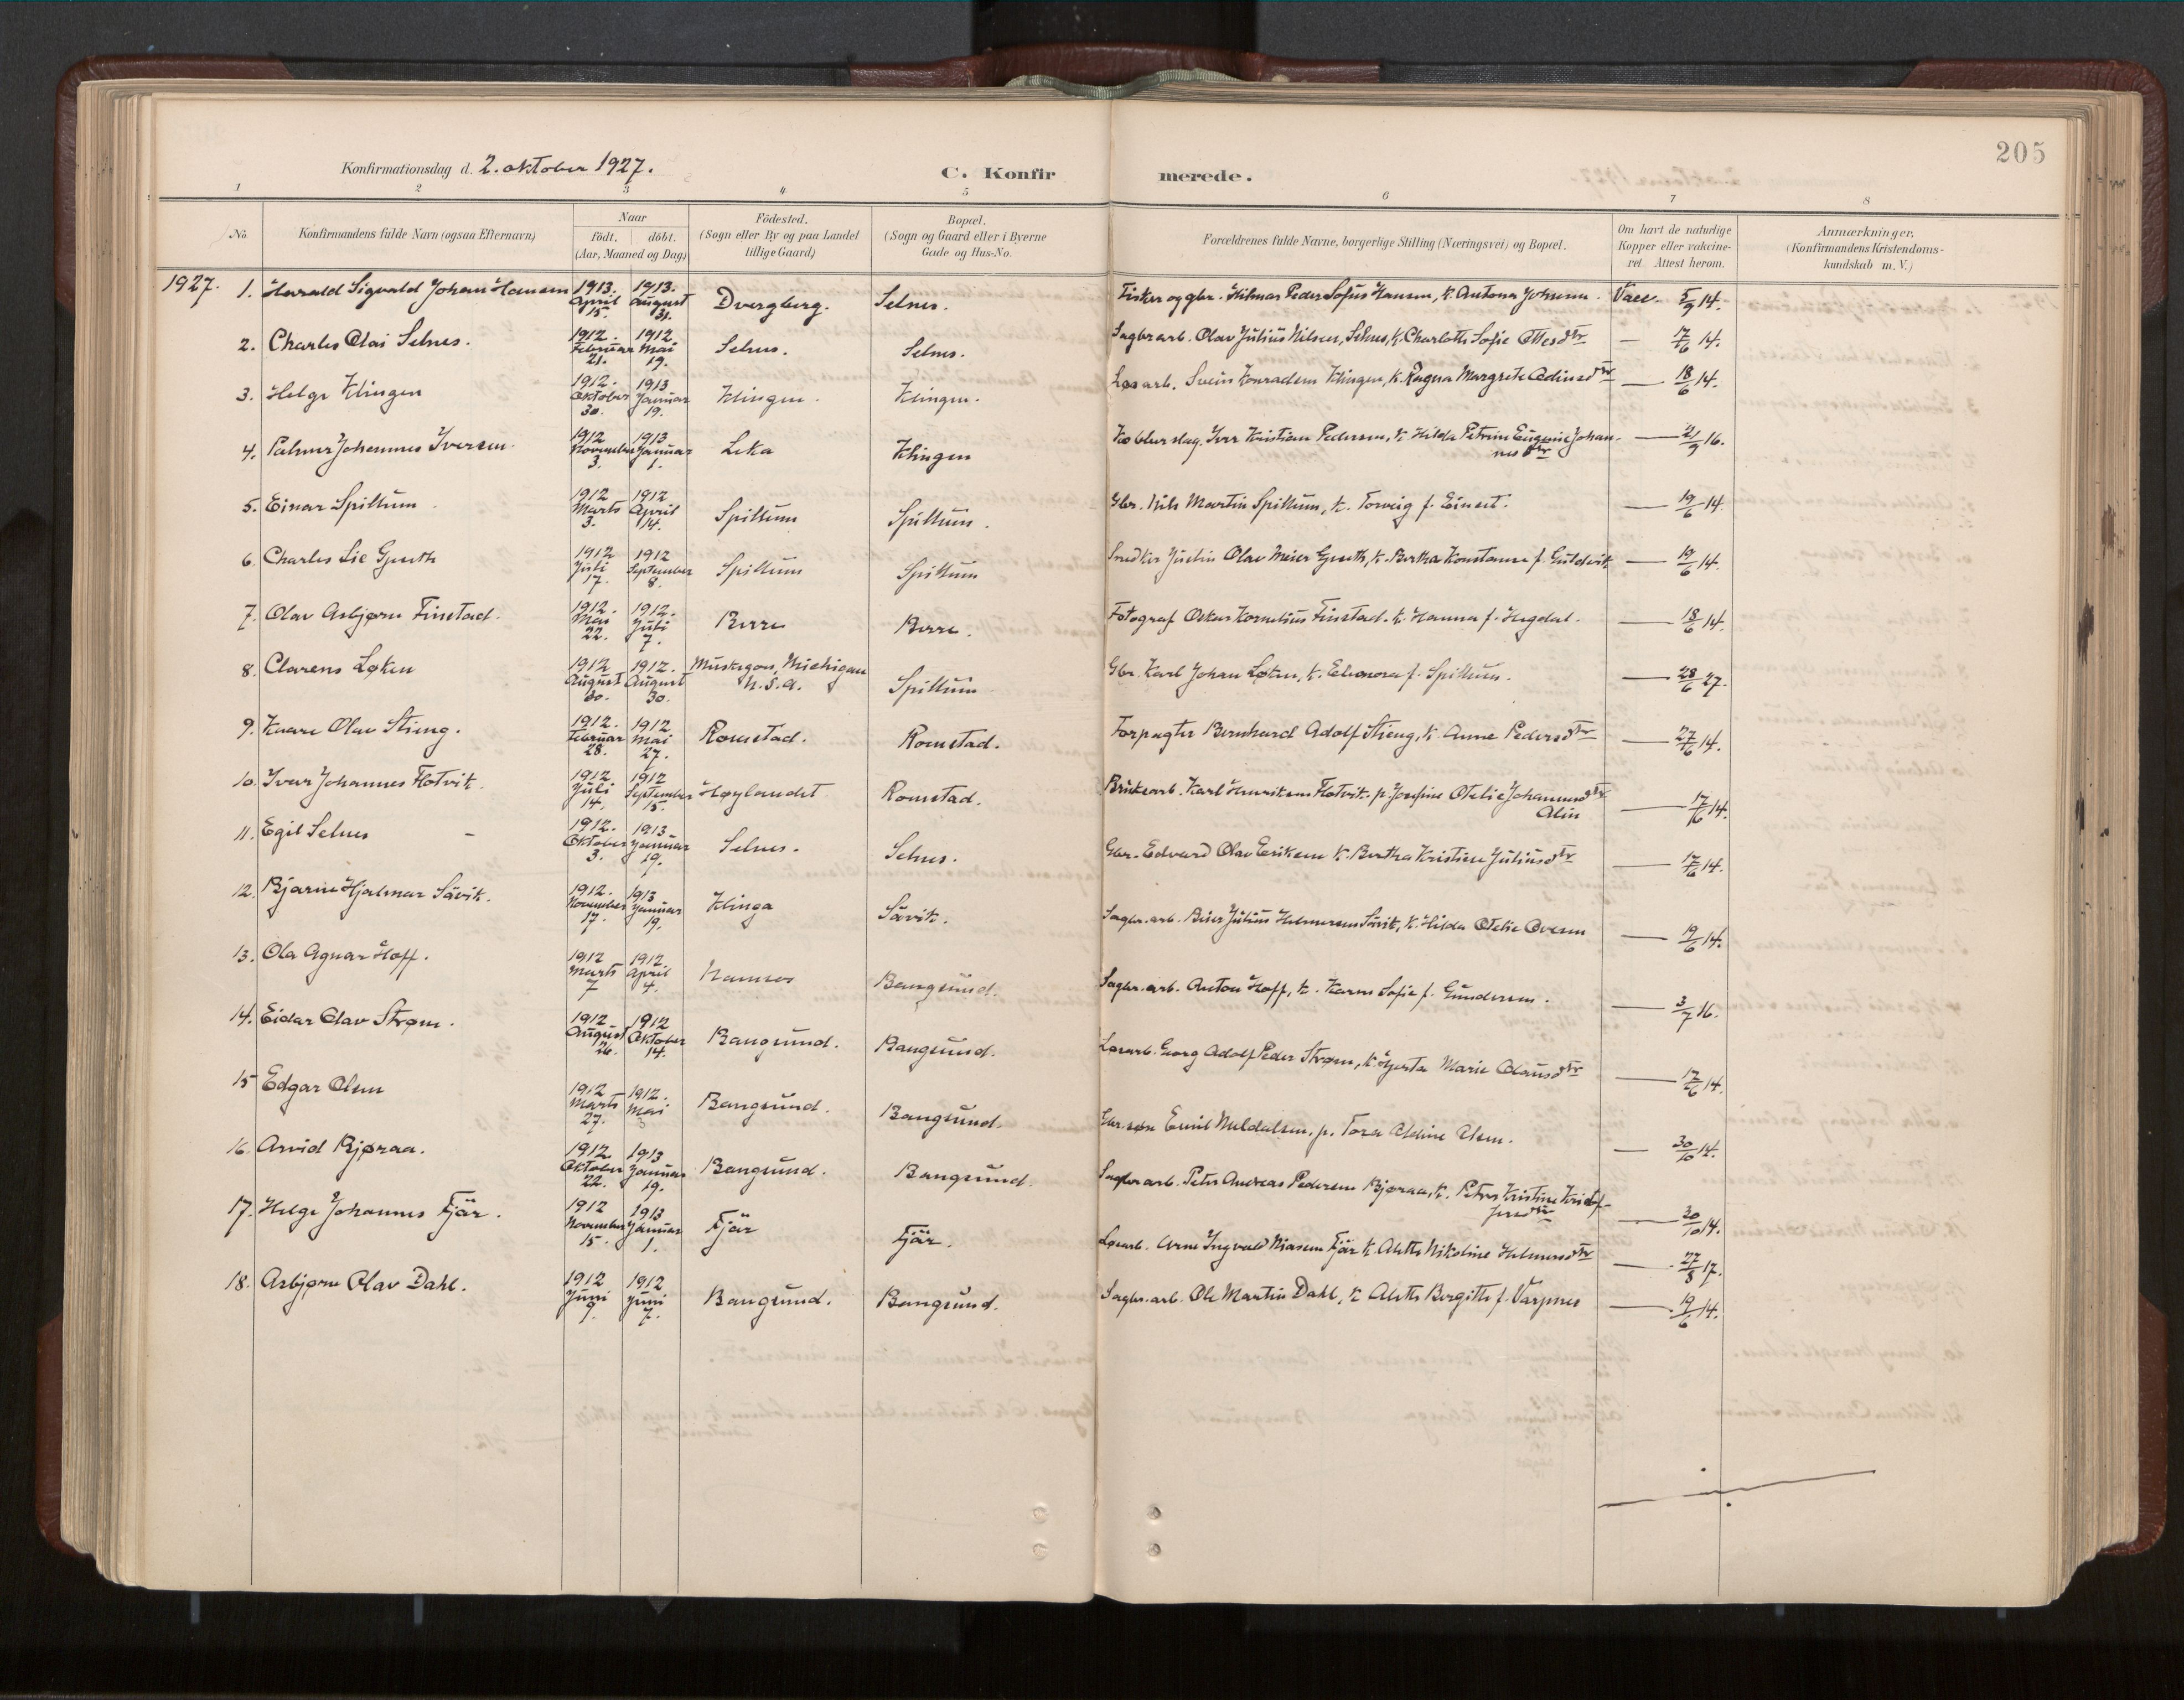 205
Konfirmationsdag d. 2. oktober 1927.
C. Konfirmerede.
1 2 3 4 5 6 7 8
No. Konfirmandens fulde Navn (ogsaa Efternavn) Naar födt. döbt. (Aar, Maaned og Dag) Födested. (Sogn eller By og paa Landet tillige Gaard) Bopæl. (Sogn og Gaard eller i Byerne Gade og Hus-No. Forældrenes fulde Navne, borgerlige Stilling (Næringsvei) og Bopæl. Om havt de naturlige Kopper eller vakcineret. Attest herom. Anmærkninger. (Konfirmandens Kristendomskundskab m. V.)
1927. 1. Harald Sigvald Johan Hansen 1913. April 15. 1913. August 31. Dverberg. Selnes. Fisker og gbr. Hilmar Peder Sofus Hansen, k. Antona Johnsen. Vacc. 5/9 14.
2. Charles Olai Selnes. 1912. Februar 21. 1912 Mai 19. Selnes. Selnes. Sagbrarb. Olav Julius Nilsen, Selnes, k. Charlotte Sofie Ottesdtr — 17/6 14.
3. Helge Klingen 1912. Oktober 30. 1913 Januar 19. Klingen. Klingen. Løsarb. Svein Konradsen Klingen, k. Ragna Margrete Odinsdtr — 18/6 14.
4. Palmer Johannes Iversen. 1912 November 3. 1913 Januar 1. Leka Klingen Kobberslag. Iver Kristian Pedersen, k. Hilda Petrine Eugenie Johannesdtr — 21/9 16.
5. Einar Spillum 1912 Marts 3. 1912 April 14. Spillum Spillum. Gbr. Nils Martin Spillum, k. Torveig f. Einert. — 19/6 14.
6. Charles Lie 1912 Juli 17. 1912 September 8. Spillum Spillum Snedker Justin Olav Meier k. Bertha Konstanse f. Guldvik — 19/6 14.
7. Olav Asbjørn Finstad. 1912. Mai 22. 1912. Juli 7. Berre Berre. Fotograf Oskar Kornelius Finstad. k. Hanna f. Hegdal. — 18/6 14.
8. Clarens Løken 1912 August 20. 1912. August 30. Muskegon, Michigan U.S.A. Spillum Gbr. Karl Johan Løken, k. Eleonora f. Spillum. — 28/6 27.
9. Kaare Olav Stieng. 1912. Februar 28. 1912 Mai 27. Romstad. Romstad. Forpagter Bernhard Adolf Stieng, k. Anne Pedersdtr — 27/6 14.
10. Ivar Johannes Flotvik. 1912. Juli 14. 1912 September 15. Høylandet Romstad. Bruksarb. Karl Henriksen Flotvik. p. Josefine Otelie Johannesdtr Alin — 17/6 14.
11. Egil Selnes – 1912. Oktober 3. 1913. Januar 19. Selnes. Selnes. Gbr. Edvard Olav Eriksen k. Bertha Kristine Juliusdtr — 17/6 14.
12. Bjarne Hjalmar Sävik. 1912. November 17. 1913 Januar 19. Klinga Sävik. Sagbr.arb. Julius Sävik, k. Hilda Otelie Ovesen — 19/6 14.
13. Ola Agnar Hoff. 1912 Marts 7 1912 April 4. Namsos Bangsund. Sagbr.arb. Anton Hoff, k. Karen Sofie f. Gundersen. — 3/7 16.
14. Eidar Olav Strøm. 1912 August 26. 1912 Oktober 14. Bangsund. Bangsund. Løsarb. Georg Adolf Peder Strøm, k. Hjerta Marie Olausdtr — 17/6 14.
15 Edgar Olsen 1912 Marts 27. 1912. Mai Bangsund. Bangsund. Gbr.søn Emil p. Tora Aldine Olsen. — 30/10 14.
16. Arvid Bjøraa. 1912. Oktober 22. 1913 Januar 19. Bangsund. Bangsund. Sagbrarb. Peter Andreas Pedersen Bjøraa, k. Petra Kristine Kristofersdtr — 30/10 14.
17. Helge Johannes Fjär. 1912 November 15. 1913 Januar 1. Fjär Fjär. Løsarb. Arne Ingvald Fjär k. Alette Nikoline Helmersdtr — 27/8 17.
18. Asbjørn Olav Dahl. 1912 Juni 9. 1912 Juni 7. Bangsund. Bangsund. Sagbr.arb. Ole Martin Dahl, k. Alette Bergitte f. Varpnes — 19/6 14.